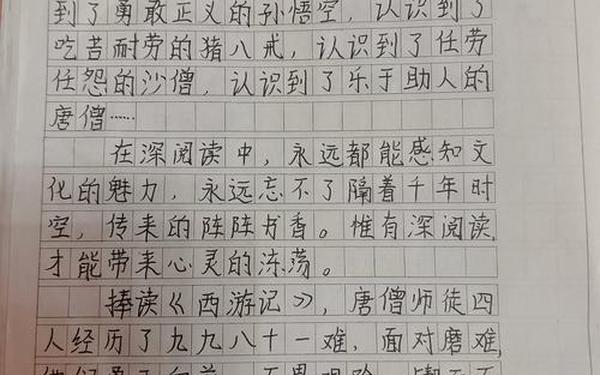 到了勇敢正义的孙悟空，认识到了
吃苦耐劳的猪八戒，认识到了任劳
任怨的沙僧，认识到了乐于助人的
唐僧……
在深阅读中，永远都能感知文
化的魅力，永远忘不了隔着千年时
空，传来的阵阵书香。惟有深阅读，
才能带来心灵的涤荡。
捧读《西游记》，唐僧师徒四
人经历了九九八十一难，面对磨难，
他们勇于向前，不畏艰险，锲而不